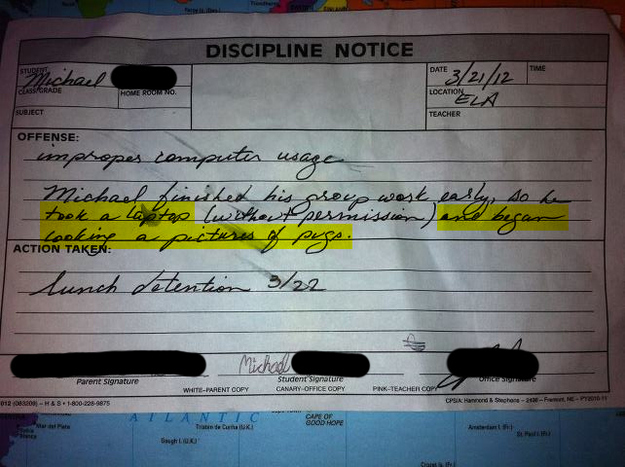 DISCIPLINE NOTICE
STUDENT
Michael
CLASS/GRADE
HOME ROOM NO.
SUBJECT
DATE 3/21/12
TIME
LOCATION
ELA
TEACHER
OFFENSE:
improper computer usage
Michael finished his group work early, so he
took a laptop (without permission) and began
looking a pictures of pugs.
ACTION TAKEN:
lunch detention 3/22
Michael
Parent Signature
Student Signature
Office Signature
WHITE-PARENT COPY CANARY-OFFICE COPY PINK-TEACHER COPY
612 (083209) – H & S • 1-800-228-9875
CPSI/ Hammond & Stephens – 2436 – Fremont, NE – PY2010-11
ATLANTIC
CAPE OF
GOOD HOPE
Mar del Plata
Tristan da Cunha (U.K.)
Gough I. (U.K.)
Amsterdam I. (Fr.)
St. Paul I. (Fr.)